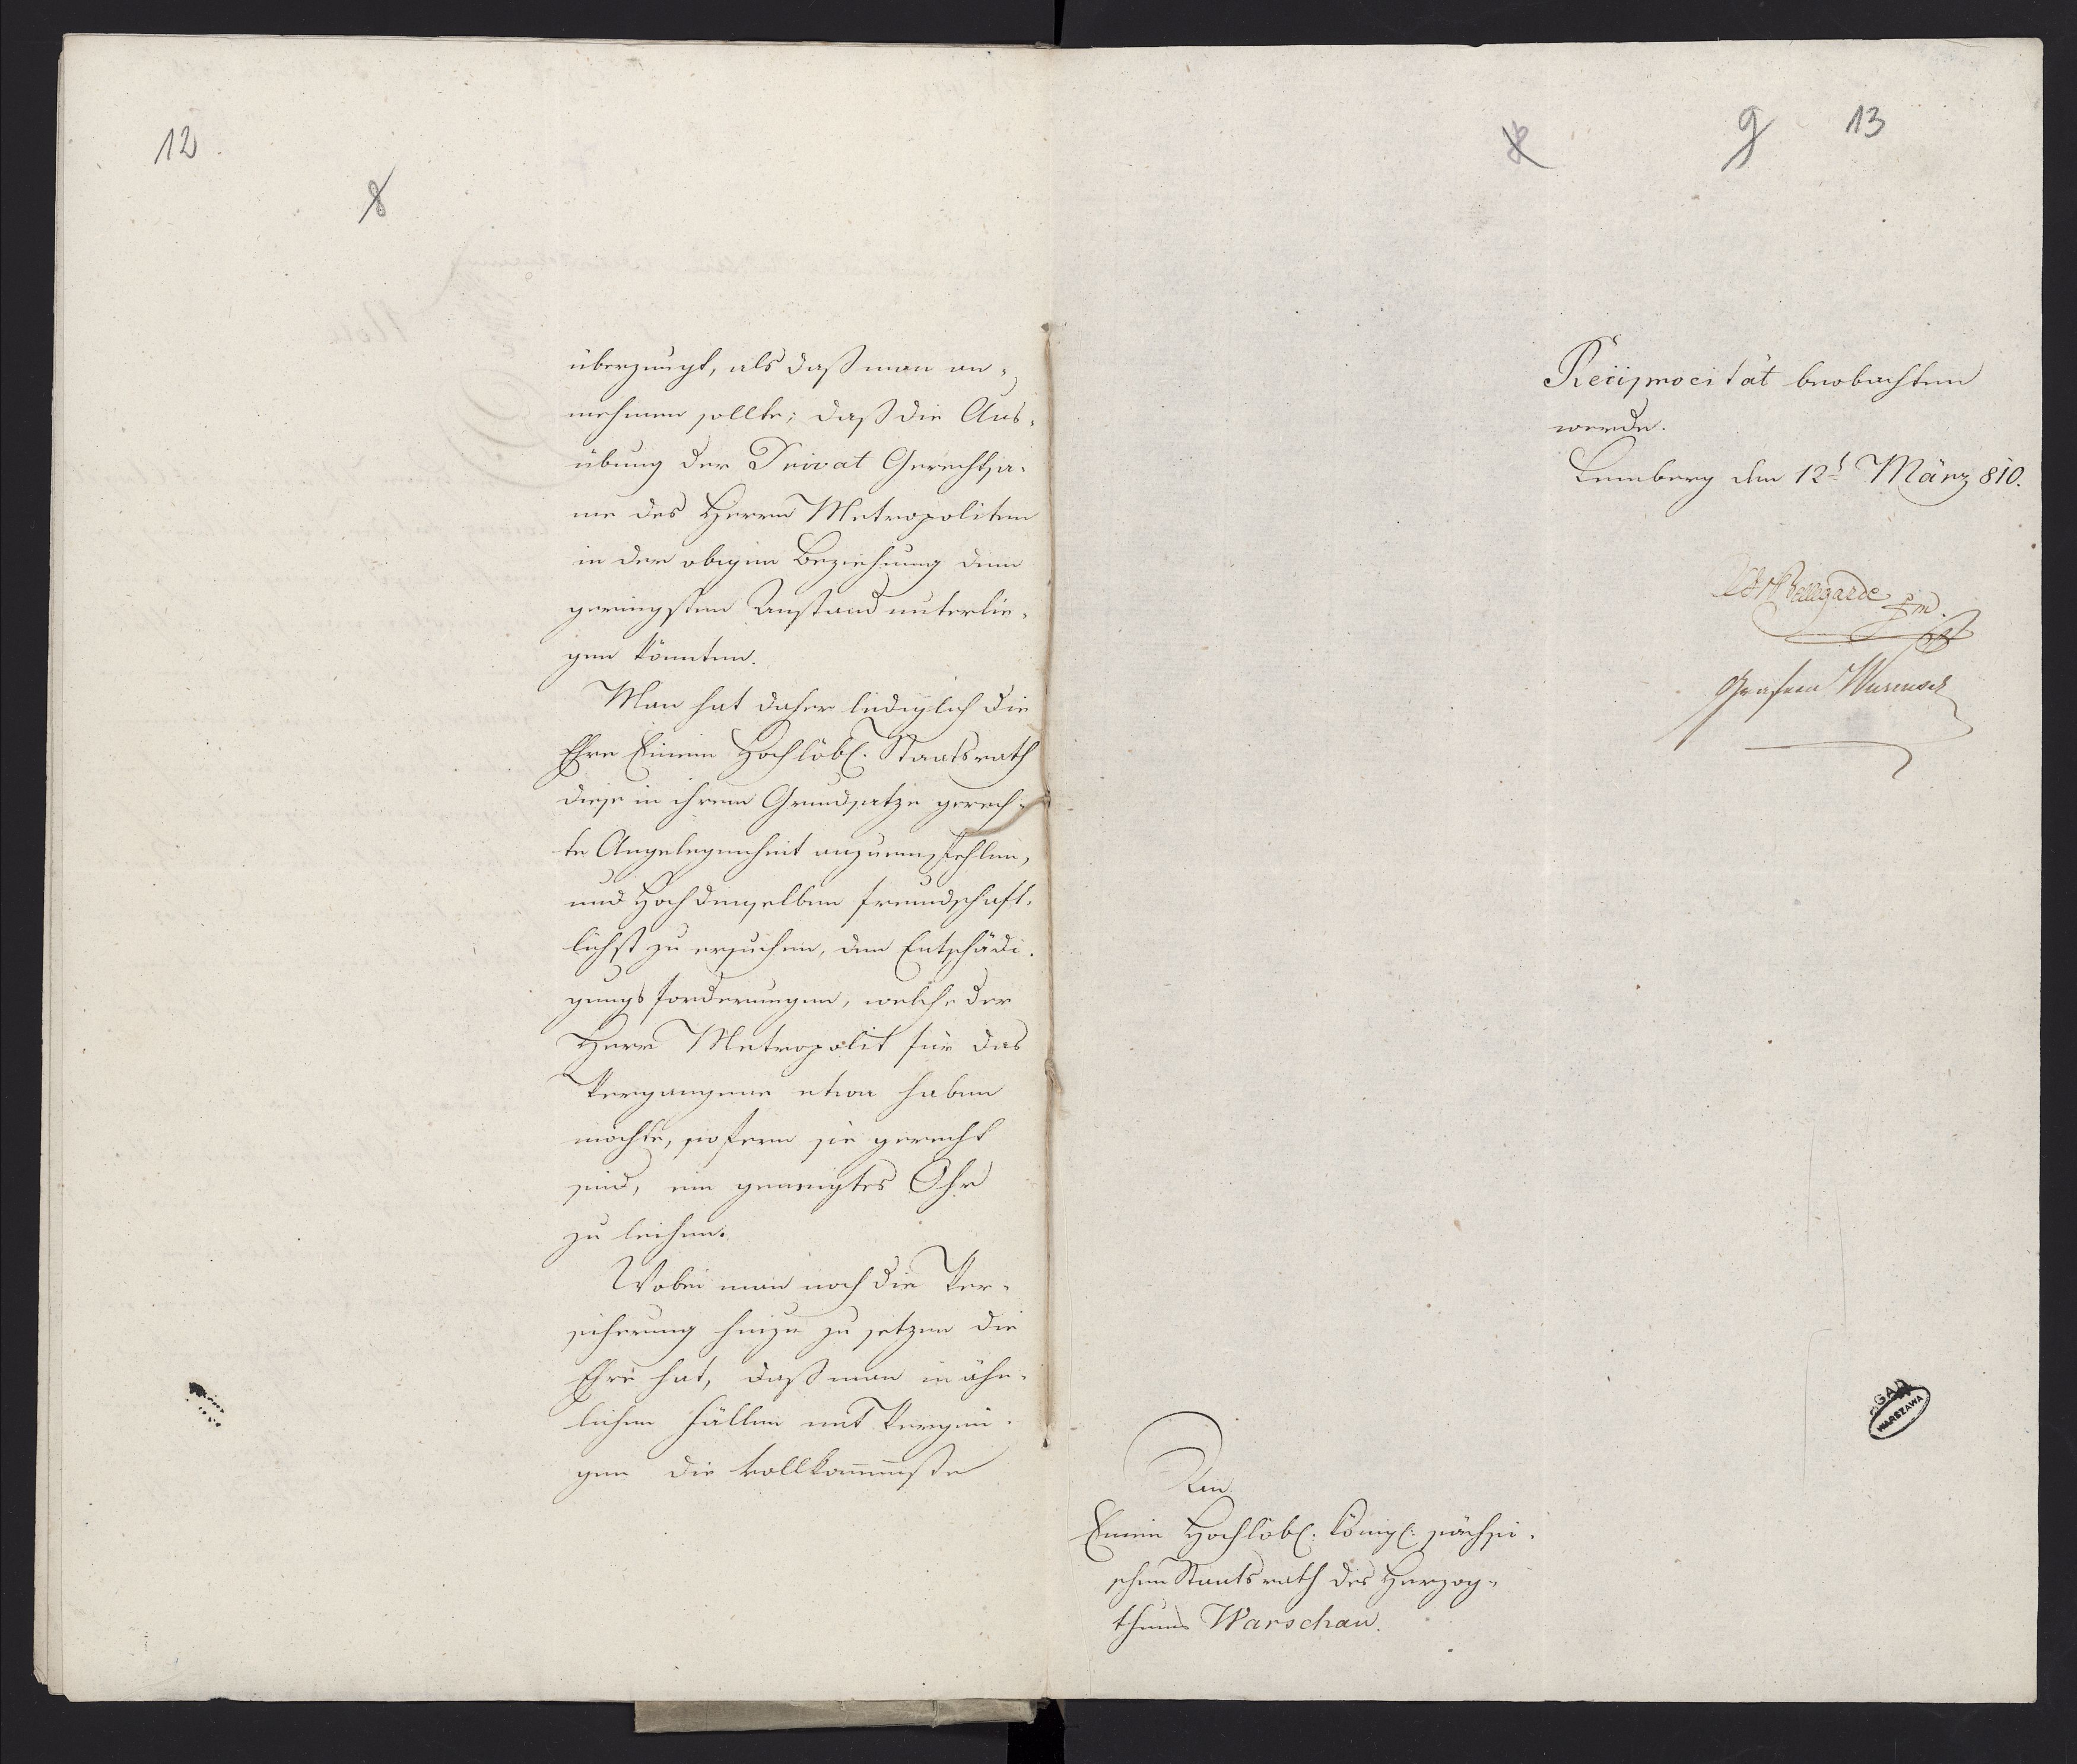 12
8
überzeugt, als daß man an-
nehmen sollte; daß die Aus-
übung der Privat Gerechtsa-
me des Herrn Metropoliten
in der obigen Beziehung dem
geringsten Anstand unterlie-
gen könnten.
Man hat daher lediglich die
Ehre Einem Hochlöbl. Staatsrath
diese in ihrem Grundsatze gerech-
te Angelegenheit anzuempfehlen,
und Hochdenselben freundschaft-
lichst zu ersuchen, den Entschädi-
gungsforderungen, welche der
Herr Metropolit für das
Vergangene etwa haben
möchte, sofern sie gerecht
sind, ein geneigtes Ohr
zu leihen.
Wobei man noch die Ver-
sicherung hinzu zu setzen die
Ehre hat, daß man in ähn-
lichen Fällen mit Vergnü-
gen die vollkom̅enste
8
9 13
Reciprocität beobachten
werde.
Lemberg den 12t März 810.
Bellegarde
Grafen Wurmser
An
Einen Hochlöbl. Königl. sächsi-
schen Staatsrath des Herzog-
thums Warschau.
AGAD
WARSZAWA